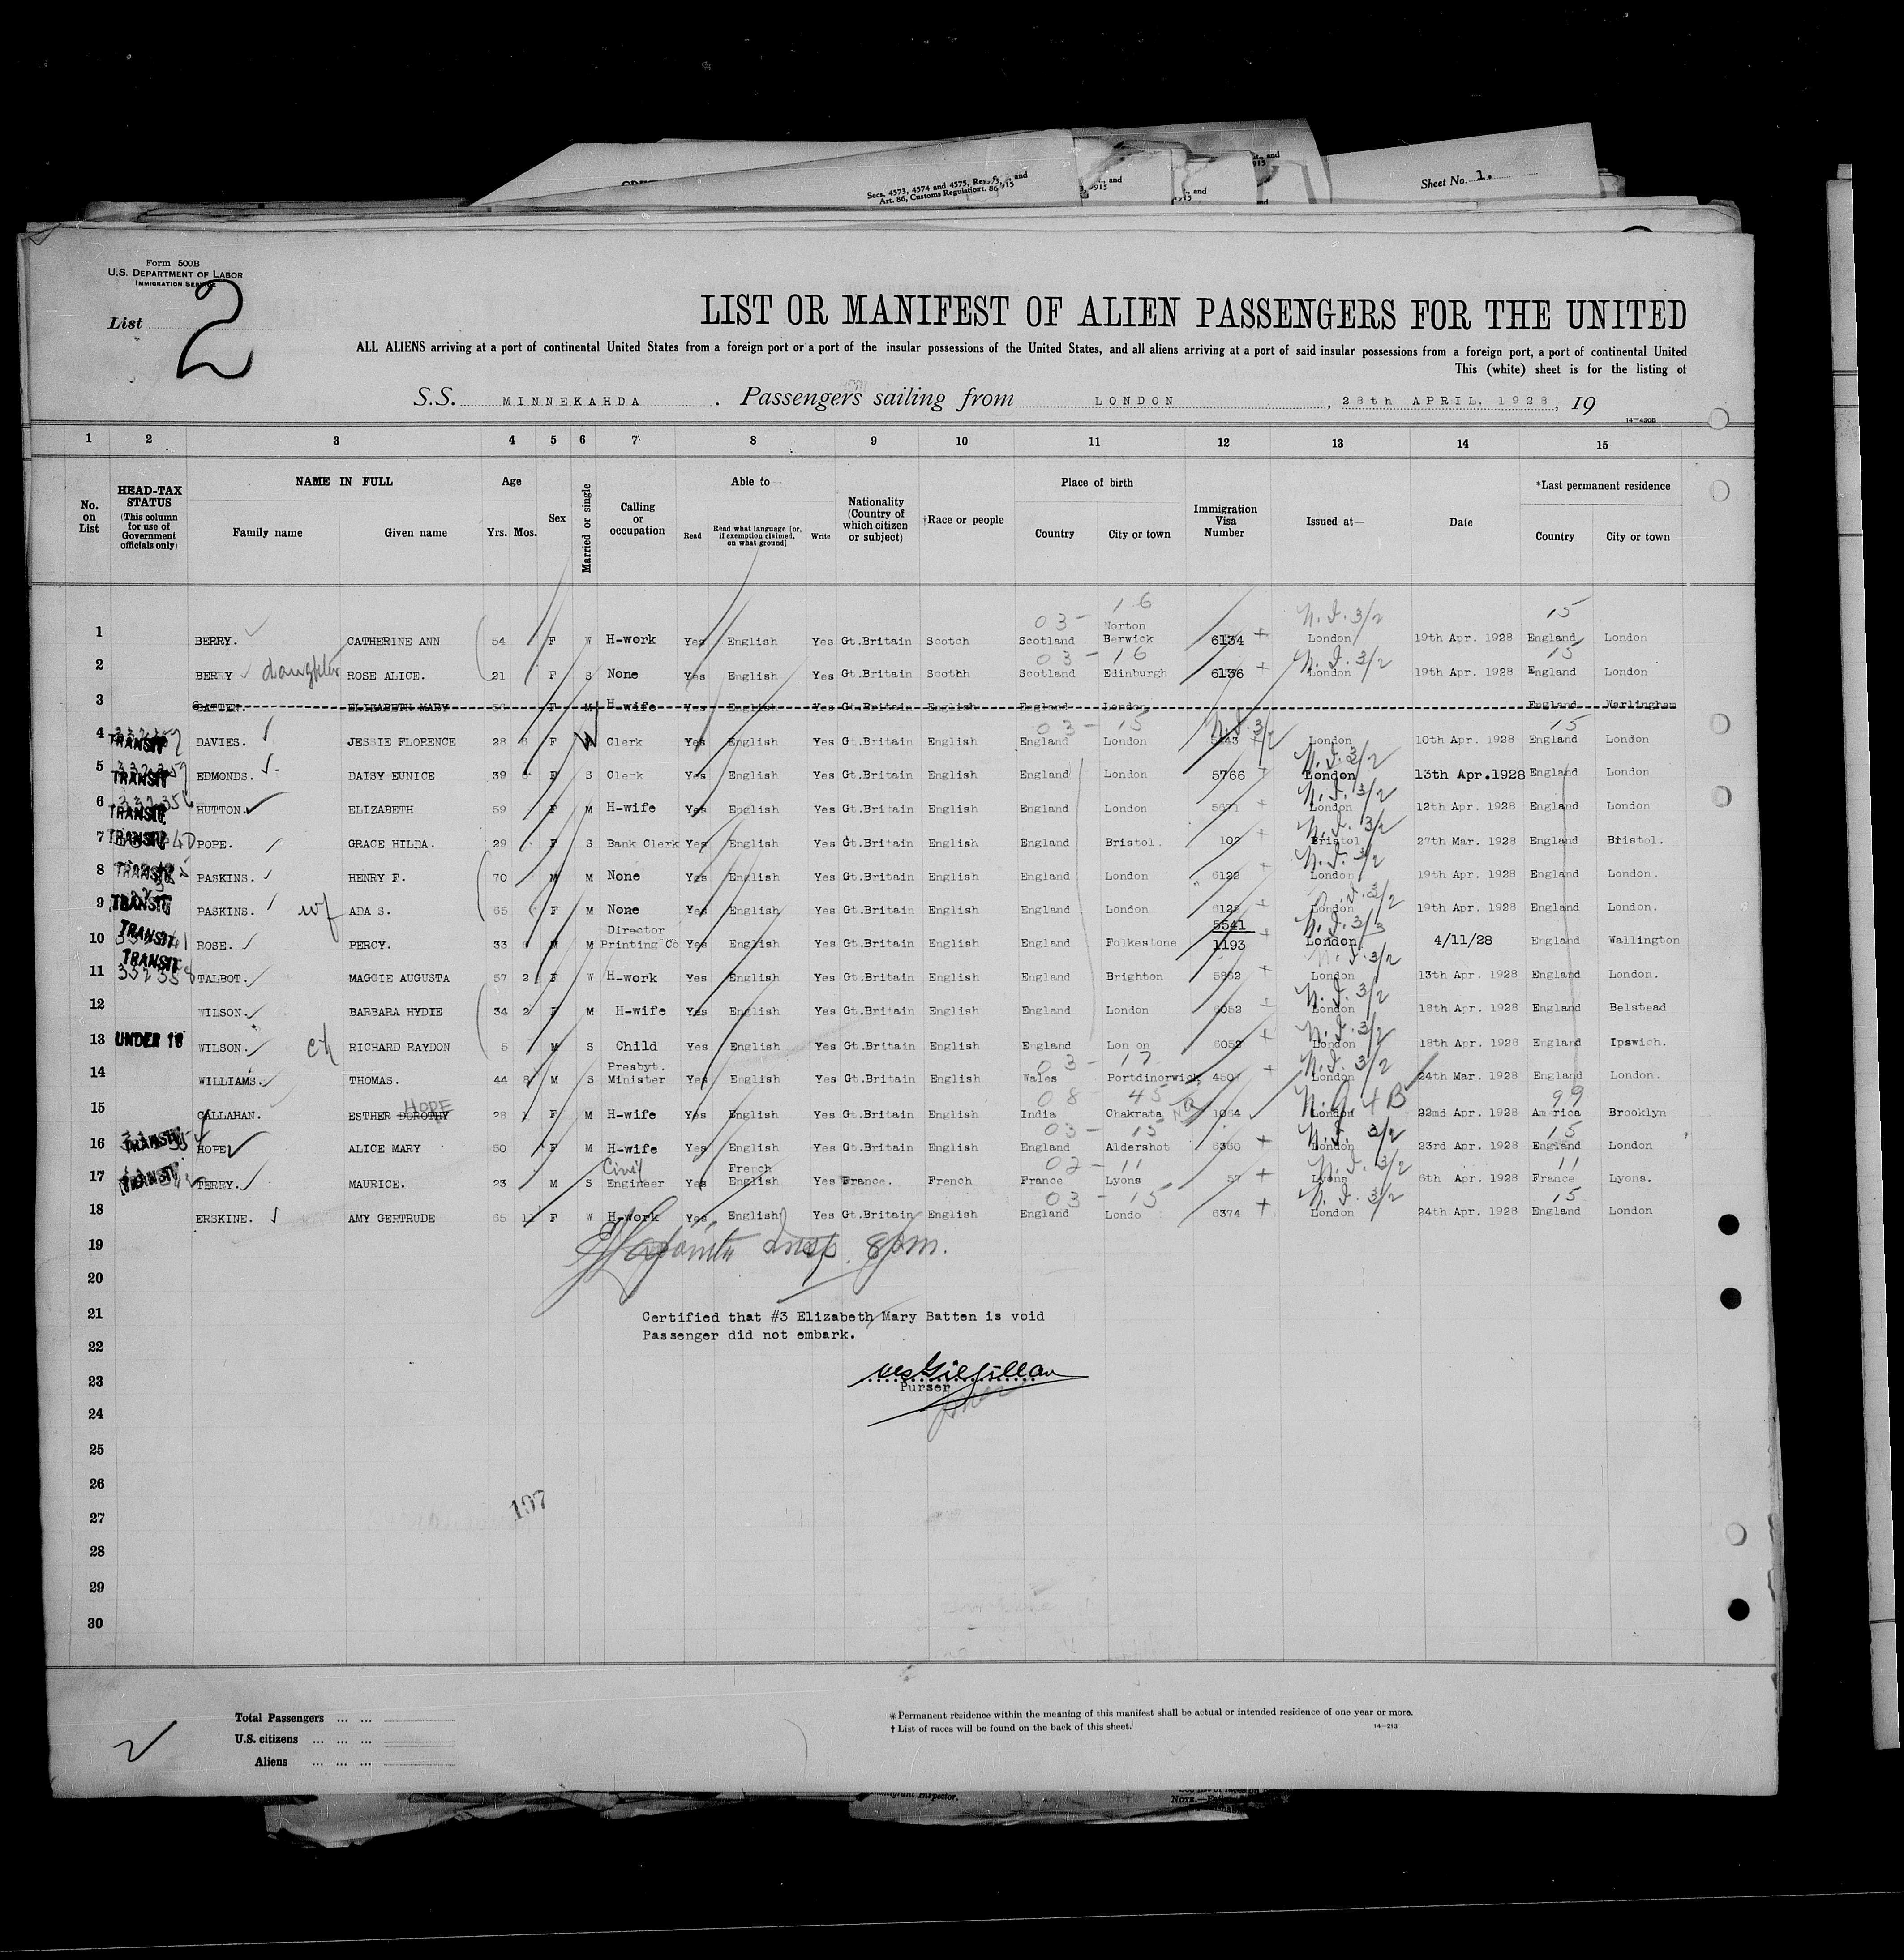 Secs. 4573, 4574 and 4575, Rev. and
Art. 86, Customs Regulations. 1915
Sheet No. 1.
Form 500B
U.S. DEPARTMENT OF LABOR
IMMIGRATION SERVICE
List 2
LIST OR MANIFEST OF ALIEN PASSENGERS FOR THE UNITED
ALL ALIENS arriving at a port of continental United States from a foreign port or a port of the insular possessions of the United States, and all aliens arriving at a port of said insular possessions from a foreign port, a port of continental United
This (white) sheet is for the listing of
S.S. MINNEKAHDA. Passengers sailing from LONDON, 28th APRIL, 1928, 19
14-430B
1 2 3 4 5 6 7 8 9 10 11 12 13 14 15
No. on List
HEAD-TAX STATUS (This column for use of Government officials only)
NAME IN FULL Family name Given name
Age Yrs. Mos.
Sex
Married or single
Calling or occupation
Able to Read Read what language [or, if exemption claimed, on what ground] Write
Nationality (Country of which citizen or subject)
†Race or people
Place of birth Country City or town
Immigration Visa Number
Issued at—
Date
*Last permanent residence Country City or town
03- 16 N.I. 3/2 15
1 BERRY. CATHERINE ANN 54 F W H-work Yes English Yes Gt.Britain Scotch Scotland Norton Berwick 6134 London 19th Apr. 1928 England London
03 - 16 N.I. 3/2 15
2 BERRY daughter ROSE ALICE. 21 F S None Yes English Yes Gt.Britain Scothh Scotland Edinburgh 6136 London 19th Apr. 1928 England London
3 BATTEN. ELIZABETH MARY F M H-wife Yes English Yes Gt.Britain English England London England Warlingham
03 - 15 N.I. 3/2 15
4 TRANSIT DAVIES. JESSIE FLORENCE 28 F W Clerk Yes English Yes Gt.Britain English England London London 10th Apr. 1928 England London
N.I. 3/2
5 TRANSIT EDMONDS. DAISY EUNICE 39 F S Clerk Yes English Yes Gt.Britain English England London 5766 London 13th Apr.1928 England London
N.I. 3/2
6 TRANSIT HUTTON. ELIZABETH 59 F M H-wife Yes English Yes Gt.Britain English England London London 12th Apr. 1928 England London
N.I. 3/2
7 TRANSIT POPE. GRACE HILDA. 29 F S Bank Clerk Yes English Yes Gt.Britain English England Bristol. 102 Bristol 27th Mar. 1928 England Bristol.
N.I. 3/2
8 TRANSIT PASKINS. HENRY F. 70 M M None Yes English Yes Gt.Britain English England London 6122 London 19th Apr. 1928 England London.
N.I. 3/2
9 TRANSIT PASKINS. wf ADA S. 65 F M None Yes English Yes Gt.Britain English England London London 19th Apr. 1928 England London.
N.I. 3/3
10 TRANSIT ROSE. PERCY. 33 M M Director Printing Co Yes English Yes Gt.Britain English England Folkestone 5541 1193 London 4/11/28 England Wallington
N.I. 3/2
11 TRANSIT 332358 TALBOT. MAGGIE AUGUSTA 57 2 F W H-work Yes English Yes Gt.Britain English England Brighton 5862 London 13th Apr. 1928 England London.
N.I. 3/2
12 WILSON. BARBARA HYDIE 34 2 F M H-wife Yes English Yes Gt.Britain English England London 6052 London 18th Apr. 1928 England Belstead
N.I. 3/2
13 UNDER 16 WILSON. ch RICHARD RAYDON 5 M S Child Yes English Yes Gt.Britain English England Lon on 6052 London 18th Apr. 1928 England Ipswich.
03 - 17 N.I. 3/2
14 WILLIAMS. THOMAS. 44 8 M S Presbyt. Minister Yes English Yes Gt.Britain English Wales Portdinorwick 4507 London 24th Mar. 1928 England London.
08 - 45 N.Q 4B 99
15 CALLAHAN. ESTHER DOROTHY HOPE 28 1 F M H-wife Yes English Yes Gt.Britain English India Chakrata NQ 1064 London 22md Apr. 1928 America Brooklyn
03 - 15 N.I. 3/2 15
16 TRANSIT HOPE ALICE MARY 50 F M H-wife Yes English Yes Gt.Britain English England Aldershot 6360 London 23rd Apr. 1928 England London
02 - 11 N.I. 3/2 11
17 TRANSIT TERRY. MAURICE. 23 M S Civil Engineer Yes French English Yes France. French France Lyons 57 Lyons 6th Apr. 1928 France Lyons.
03 - 15 N.I. 3/2 15
18 ERSKINE. AMY GERTRUDE 65 11 F W H-work Yes English Yes Gt.Britain English England Londo 6374 London 24th Apr. 1928 England London
19 insp. 8pm.
20
21 Certified that #3 Elizabeth Mary Batten is void
Passenger did not embark.
22
23 Purser
24
25
26
27 197
28
29
30
Total Passengers
U.S. citizens
Aliens
* Permanent residence within the meaning of this manifest shall be actual or intended residence of one year or more.
† List of races will be found on the back of this sheet.
14-213
Immigrant Inspector.